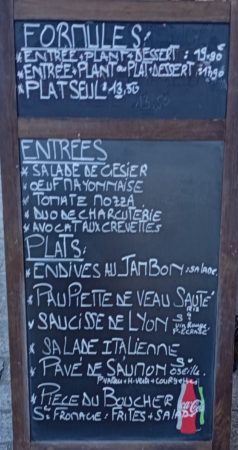 FORMULES:
* ENTRÉE + PLAT + DESSERT : 19.90€
* ENTRÉE + PLAT OU PLAT + DESSERT : 17.90
* PLAT SEUL : 13.50
ENTRÉES
* SALADE DE GESIER
* OEUF MAYONNAISE
* TOMATE MOZZA
* DUO DE CHARCUTERIE
* AVOCAT AUX CREVETTES
PLATS:
* ENDIVES AU JAMBON : SALADE
* PAUPIETTE DE VEAU SAUTÉ
RIZ
* SAUCISSE DE LYON S°
VIN ROUGE
* SALADE ITALIENNE
* PAVÉ DE SAUMON S°
OSEILLE
* PIÈCE DU BOUCHER
S° FROMAGE : FRITES + SALADE
Coca-Cola